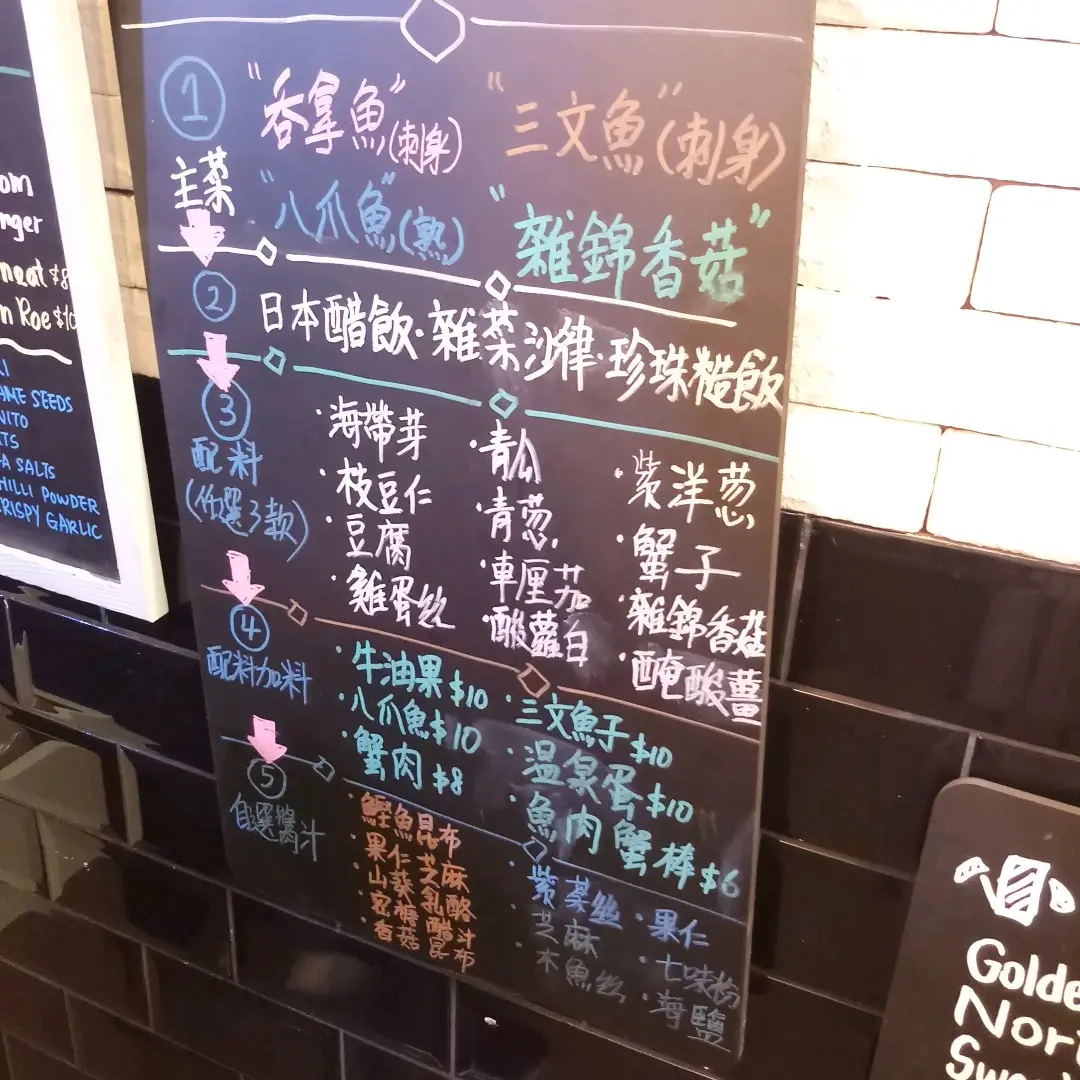 ① "吞拿魚"(刺身) "三文魚"(刺身)
主菜 "八爪魚"(熟) "雜錦香菇"
② 日本醋飯·雜菜沙律·珍珠糙飯
③ ·海帶芽 ·青瓜 ·紫洋葱
配料 ·枝豆仁 ·青葱 ·蟹子
(任選3款) ·豆腐 ·車厘茄 ·雜錦香菇
·雞蛋絲 ·酸蘿白 ·醃酸薑
④ ·牛油果$10 ·三文魚子$10
配料加料 ·八爪魚$10 ·温泉蛋$10
·蟹肉$8 ·魚肉蟹棒$6
⑤ ·鰹魚昆布 ·紫菜絲 ·果仁
自選醬汁 ·果仁芝麻 ·芝麻 ·七味粉
·山葵乳酪 ·木魚絲 ·海鹽
·蜜糖醋汁
·香菇昆布
om
nger
meat $8
n Roe $10
AME SEEDS
NITO
TS
A SALTS
CHILLI POWDER
CRISPY GARLIC
Golde
Nori